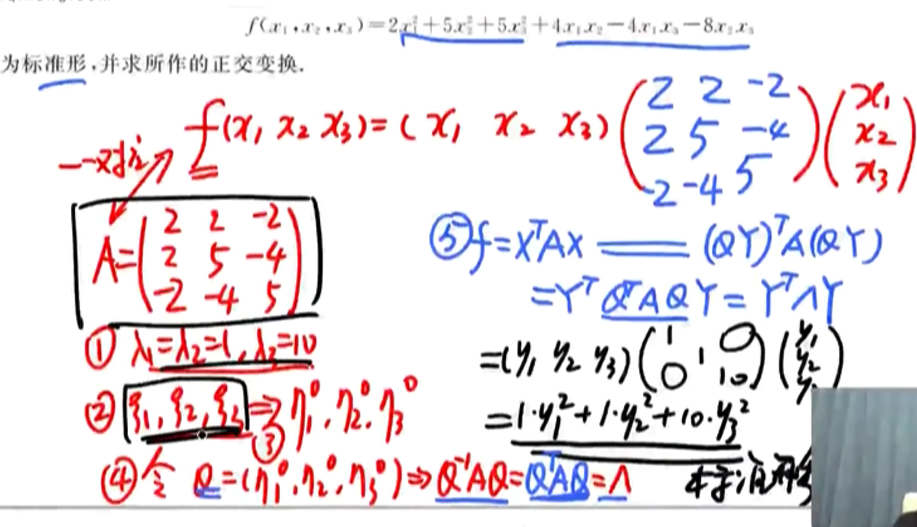 f(x₁,x₂,x₃)=2x₁²+5x₂²+5x₃²+4x₁x₂−4x₁x₃−8x₂x₃
为标准形,并求所作的正交变换.
f(x₁ x₂ x₃)=(x₁ x₂ x₃)(2 2 -2
2 5 -4
-2 -4 5)(x₁
x₂
x₃)
一一对应
A=(2 2 -2
2 5 -4
-2 -4 5)
① λ₁=λ₂=1, λ₃=10
② ξ₁,ξ₂,ξ₃ ⇒③ η₁⁰,η₂⁰,η₃⁰
④ 令 Q=(η₁⁰,η₂⁰,η₃⁰)⇒Q⁻¹AQ=QᵀAQ=Λ
⑤ f=XᵀAX = (QY)ᵀA(QY)
=YᵀQᵀAQY=YᵀΛY
=(y₁ y₂ y₃)(1 0
1
0 10)(y₁
y₂
=1·y₁²+1·y₂²+10·y₃²